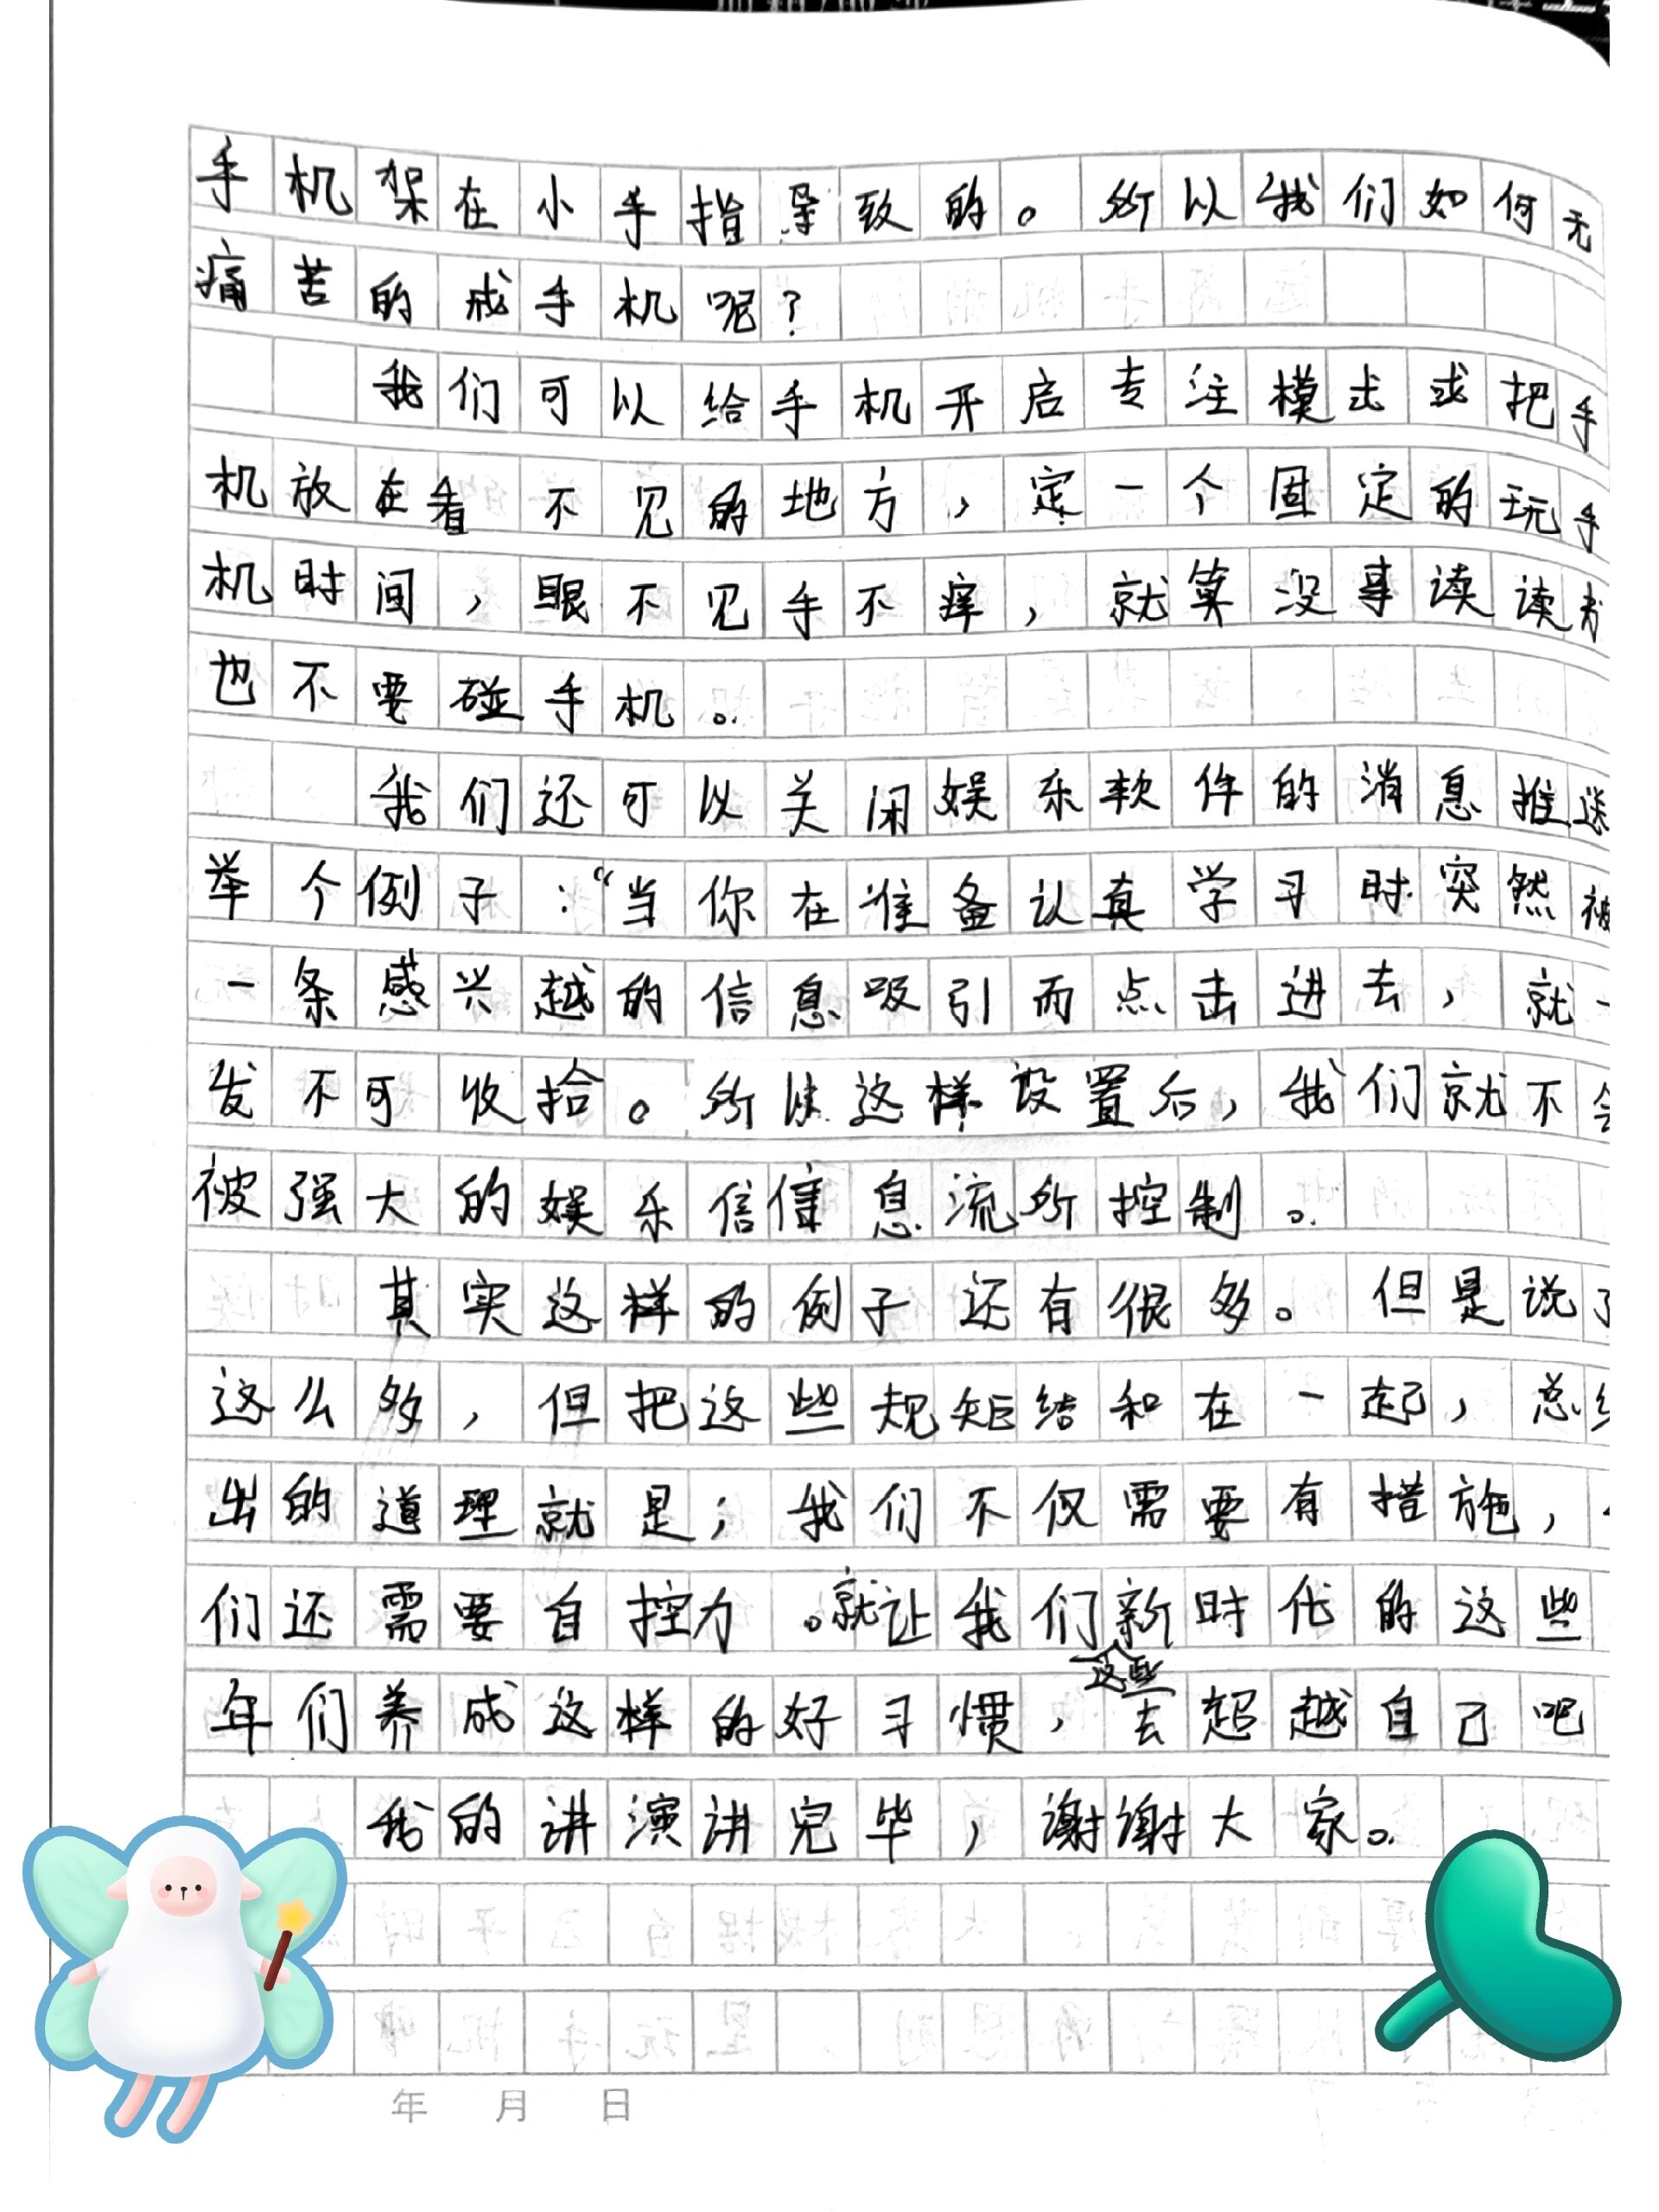 手机架在小手指导致的。所以我们如何无
痛苦的戒手机呢？
我们可以给手机开启专注模式或把手
机放在看不见的地方，定一个固定的玩手
机时间，眼不见手不痒，就算没事读读书
也不要碰手机。
我们还可以关闭娱乐软件的消息推送
举个例子：“当你在准备认真学习时突然被
一条感兴越的信息吸引而点击进去，就一
发不可收拾。所以这样设置后，我们就不会
被强大的娱乐信信息流所控制。
其实这样的例子还有很多。但是说了
这么多，但把这些规矩结和在一起，总结
出的道理就是；我们不仅需要有措施，
们还需要自控力。就让我们新时代的这些
这些
年们养成这样的好习惯，去超越自己吧
我的讲演讲完毕，谢谢大家。
年 月 日